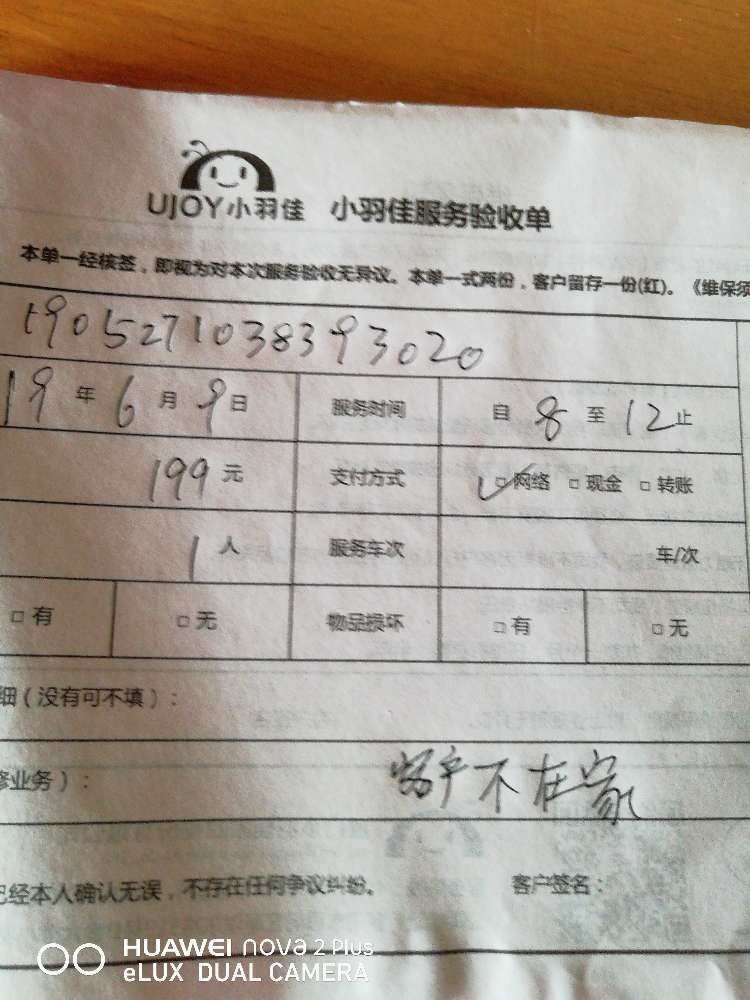 UJOY小羽佳 小羽佳服务验收单
本单一经核签，即视为对本次服务验收无异议。本单一式两份，客户留存一份(红)。《维保须
1905271038393020
19年6月9日 服务时间 自8至12止
199元 支付方式 ✓□网络 □现金 □转账
1人 服务车次 车/次
□有 □无 物品损坏 □有 □无
细（没有可不填）：
修业务）： 客户不在家
已经本人确认无误，不存在任何争议纠纷。 客户签名：
HUAWEI nova 2 Plus
eLUX DUAL CAMERA